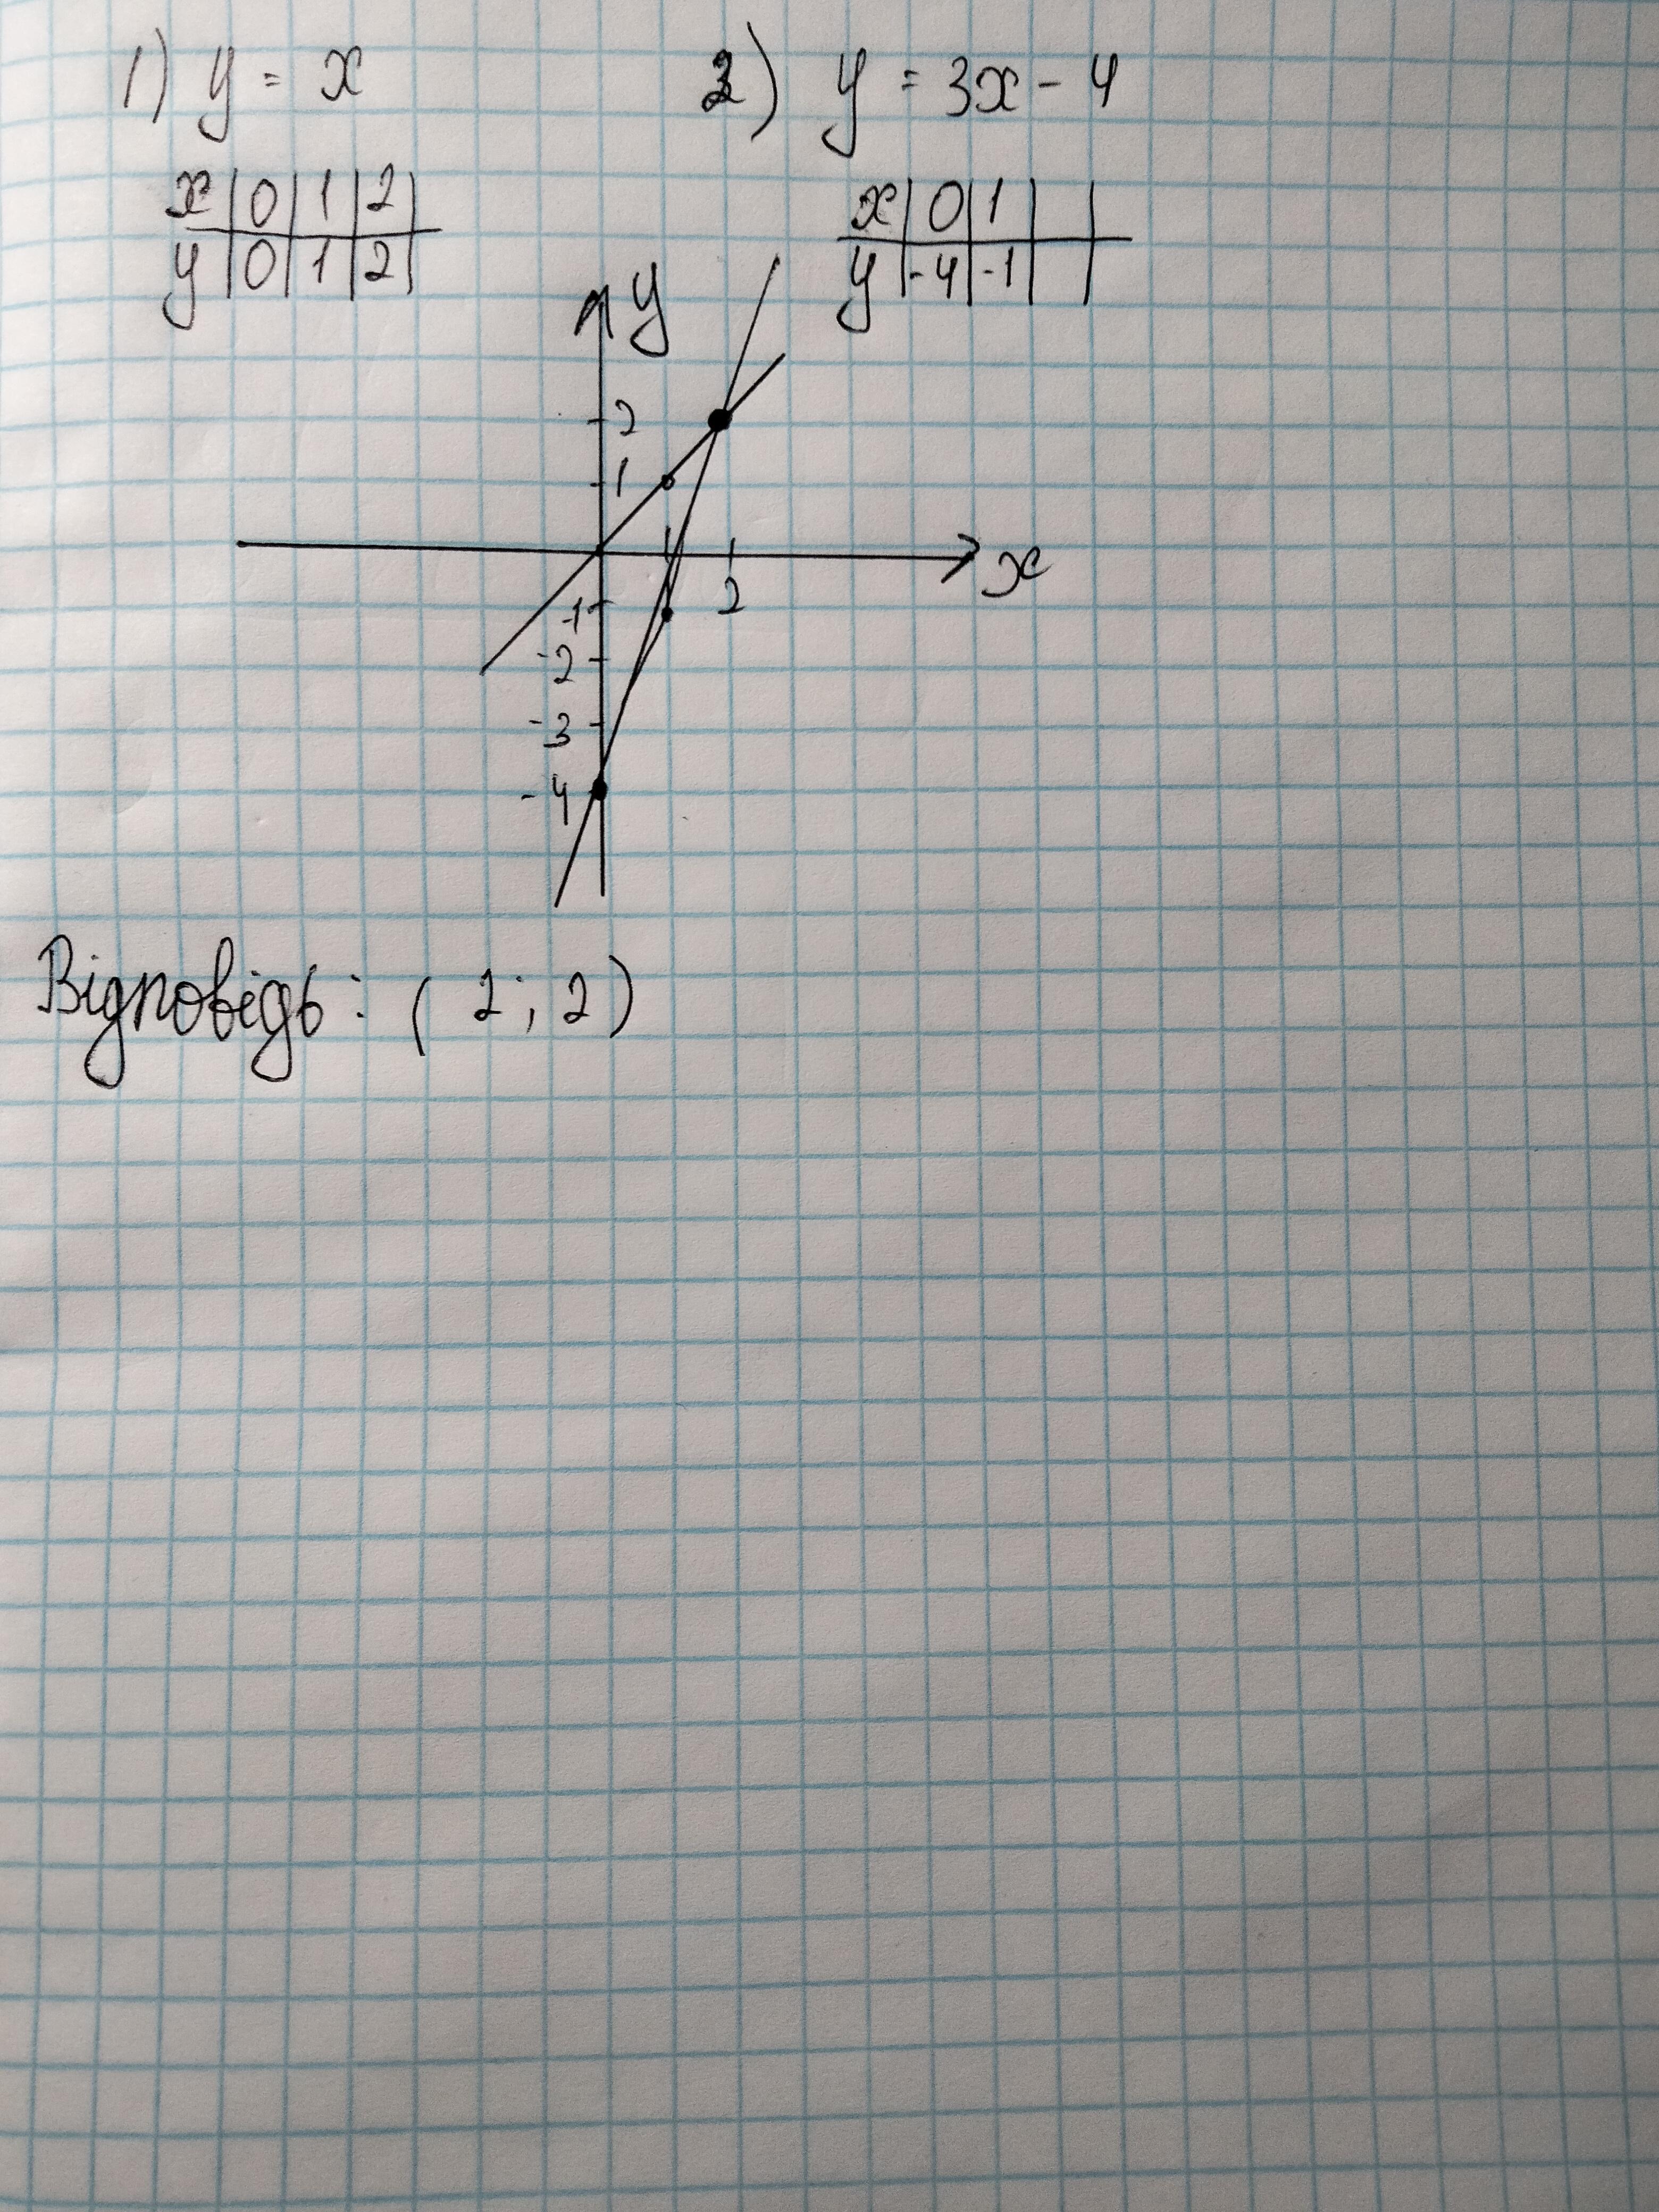 1) y = x 2) y = 3x - 4
x | 0 | 1 | 2 | x | 0 | 1 | |
y | 0 | 1 | 2 | y | -4 | -1 | |
y
2
1
1 x
-1 2
-2
-3
-4
Відповідь: (2; 2)